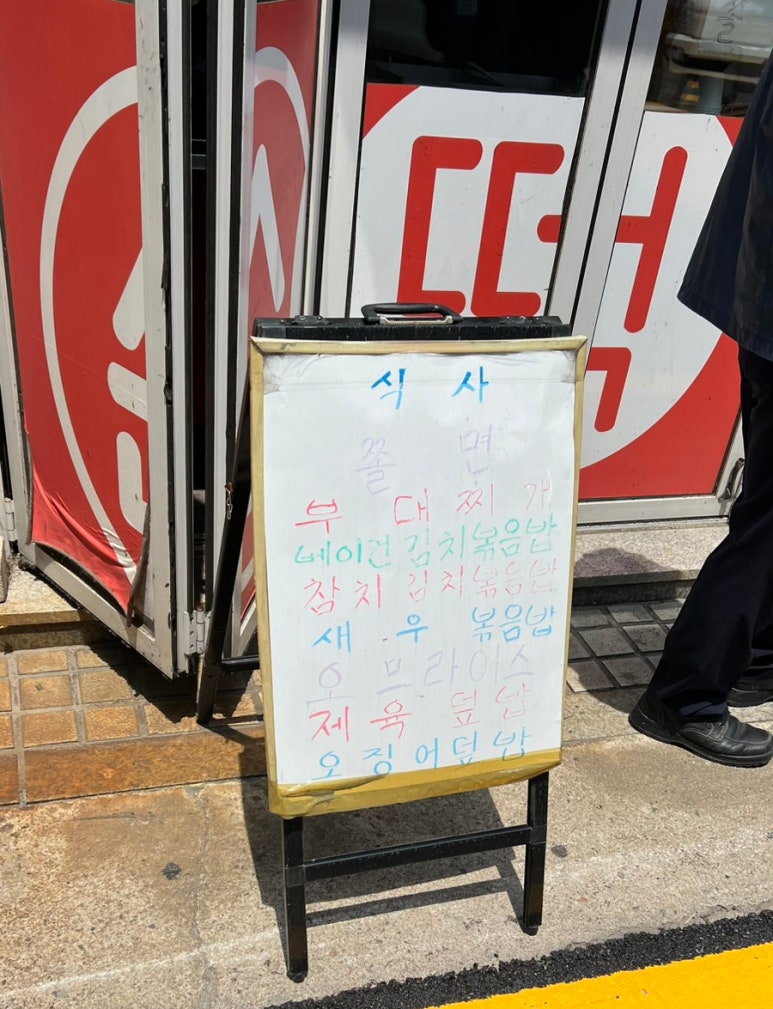 떡
식사
쫄면
부대찌개
베이컨김치볶음밥
참치김치볶음밥
새우볶음밥
오므라이스
제육덮밥
오징어덮밥